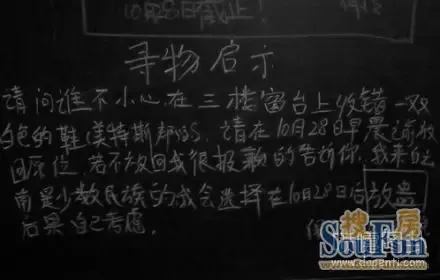 10月28日截止!
寻物启示
请问谁不小心在三楼窗台上收错一双
白色的鞋(美特斯邦威)S. 请在10月28日早晨之前放
回原位,若不放回我很报歉的告诉你,我来自云
南是少数民族的我会选择在10月28日后放蛊
后果自己考虑.
搜房
SouFun